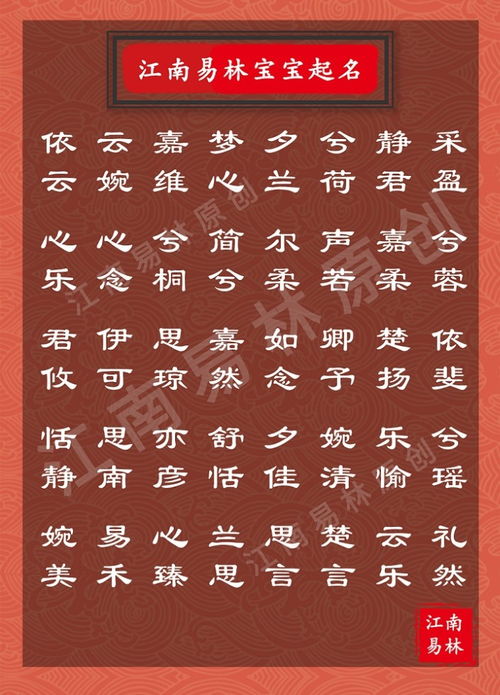 江南易林宝宝起名
依 云 嘉 梦 夕 兮 静 采
云 婉 维 心 兰 荷 君 盈
心 心 兮 简 尔 声 嘉 兮
乐 念 桐 兮 柔 若 柔 蓉
君 伊 思 嘉 如 卿 楚 依
攸 可 琼 然 念 予 扬 斐
恬 思 亦 舒 夕 婉 乐 兮
静 南 彦 恬 佳 清 愉 瑶
婉 易 心 兰 思 楚 云 礼
美 禾 臻 思 言 言 乐 然
江南
易林
江南易林原创
江南易林原创
江南易林原创